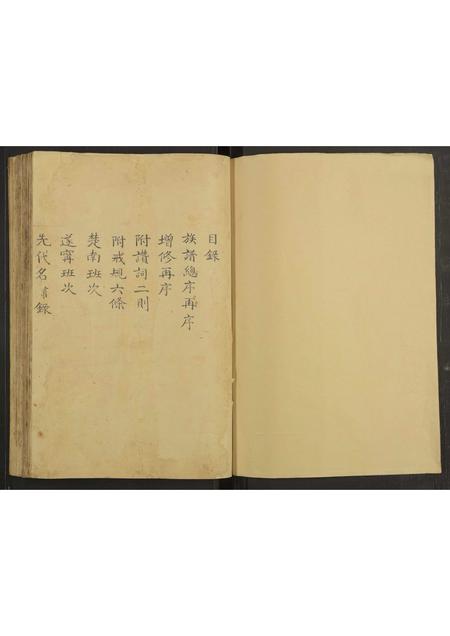 目錄
族譜總序再序
增修再序
附讚詞二則
附戒規六條
楚南班次
遂寧班次
先代名錄